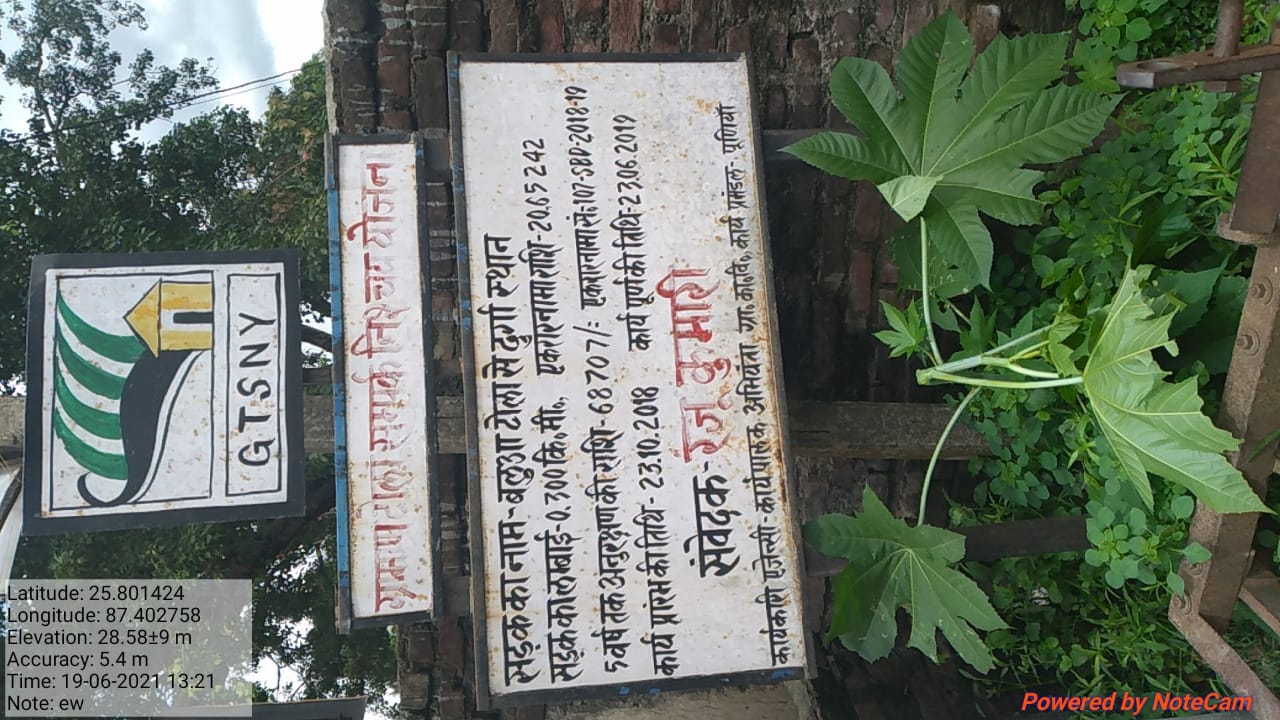 GTSNY
ग्रामीण टोला सम्पर्क निश्चय योजना
सड़क का नाम - बलुआ टोला से दुर्गा स्थान
सड़क का लंबाई - 0.300 कि.मी., एकरारनामा राशि - 20.65242
5 वर्ष तक अनुरक्षण की राशि - 68707/= एकरारनामा सं: 107-SBD-2018-19
कार्य प्रारंभ की तिथि - 23.10.2018 कार्य पूर्ण की तिथि - 23.06.2019
संवेदक - रंजू कुमारी
कार्यकारी एजेन्सी - कार्यपालक अभियंता ग्रा.का.वि. कार्य प्रमंडल - पूर्णियाँ
Latitude: 25.801424
Longitude: 87.402758
Elevation: 28.58±9 m
Accuracy: 5.4 m
Time: 19-06-2021 13:21
Note: ew
Powered by NoteCam